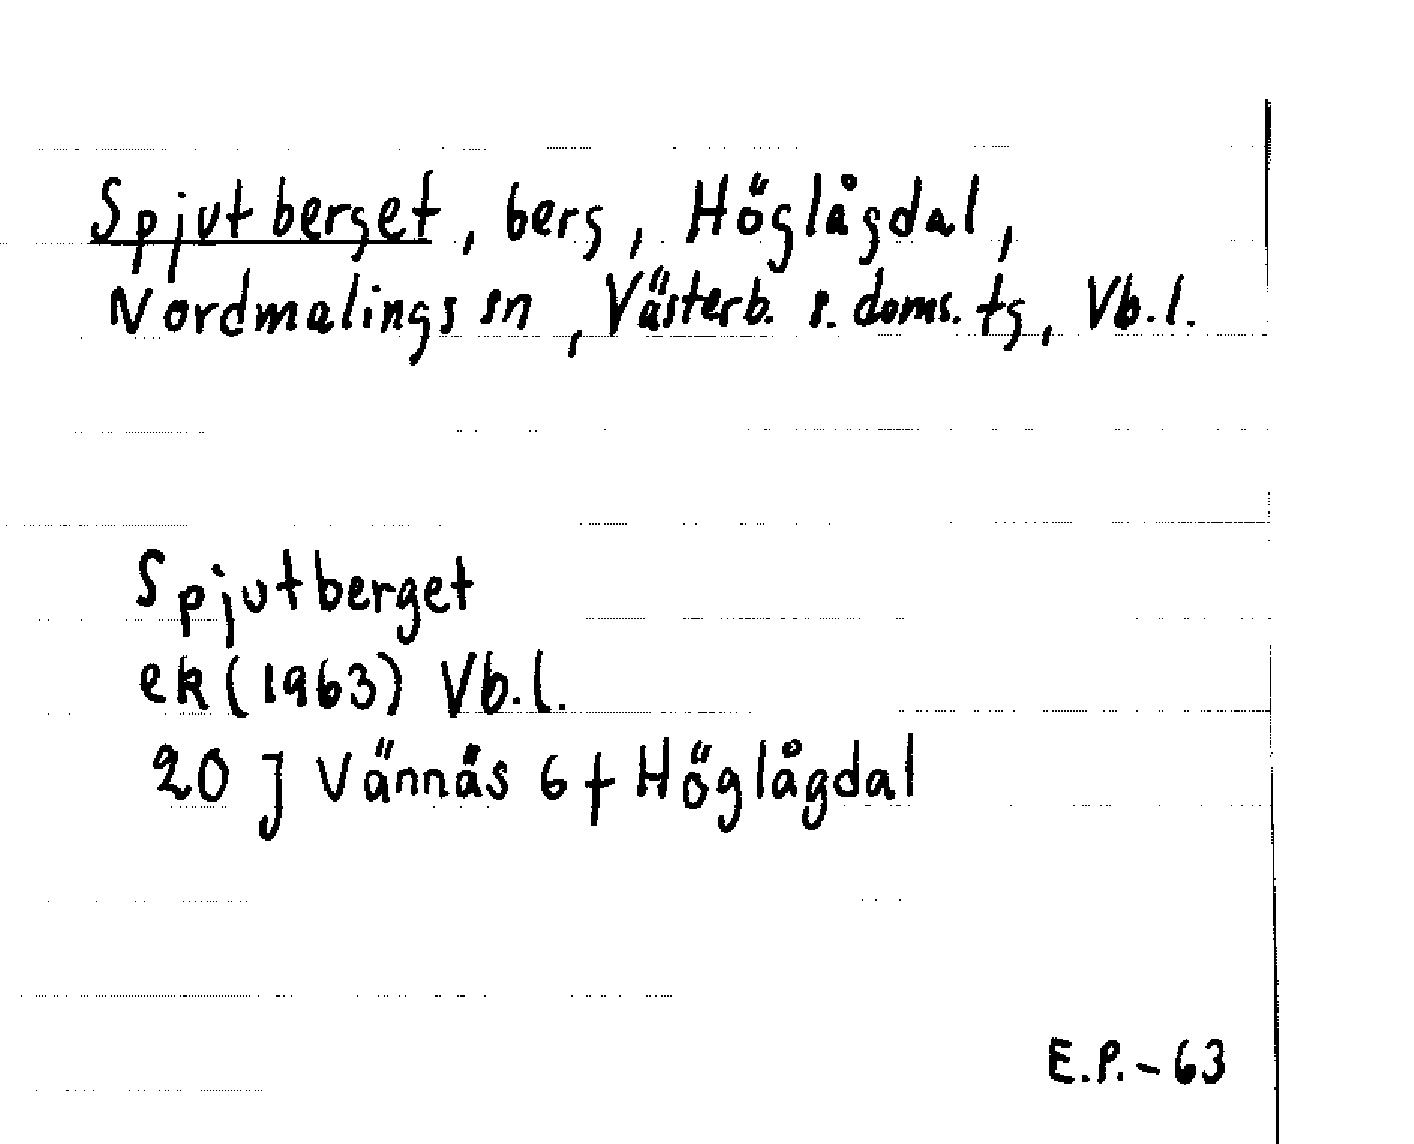 Spjutberget, berg, Höglågdal,
Nordmalings sn, Västerb. s. doms. tg, Vb.l.
Spjutberget
ek (1963) Vb.l.
20 J Vännäs 6 f Höglågdal
E.P. - 63